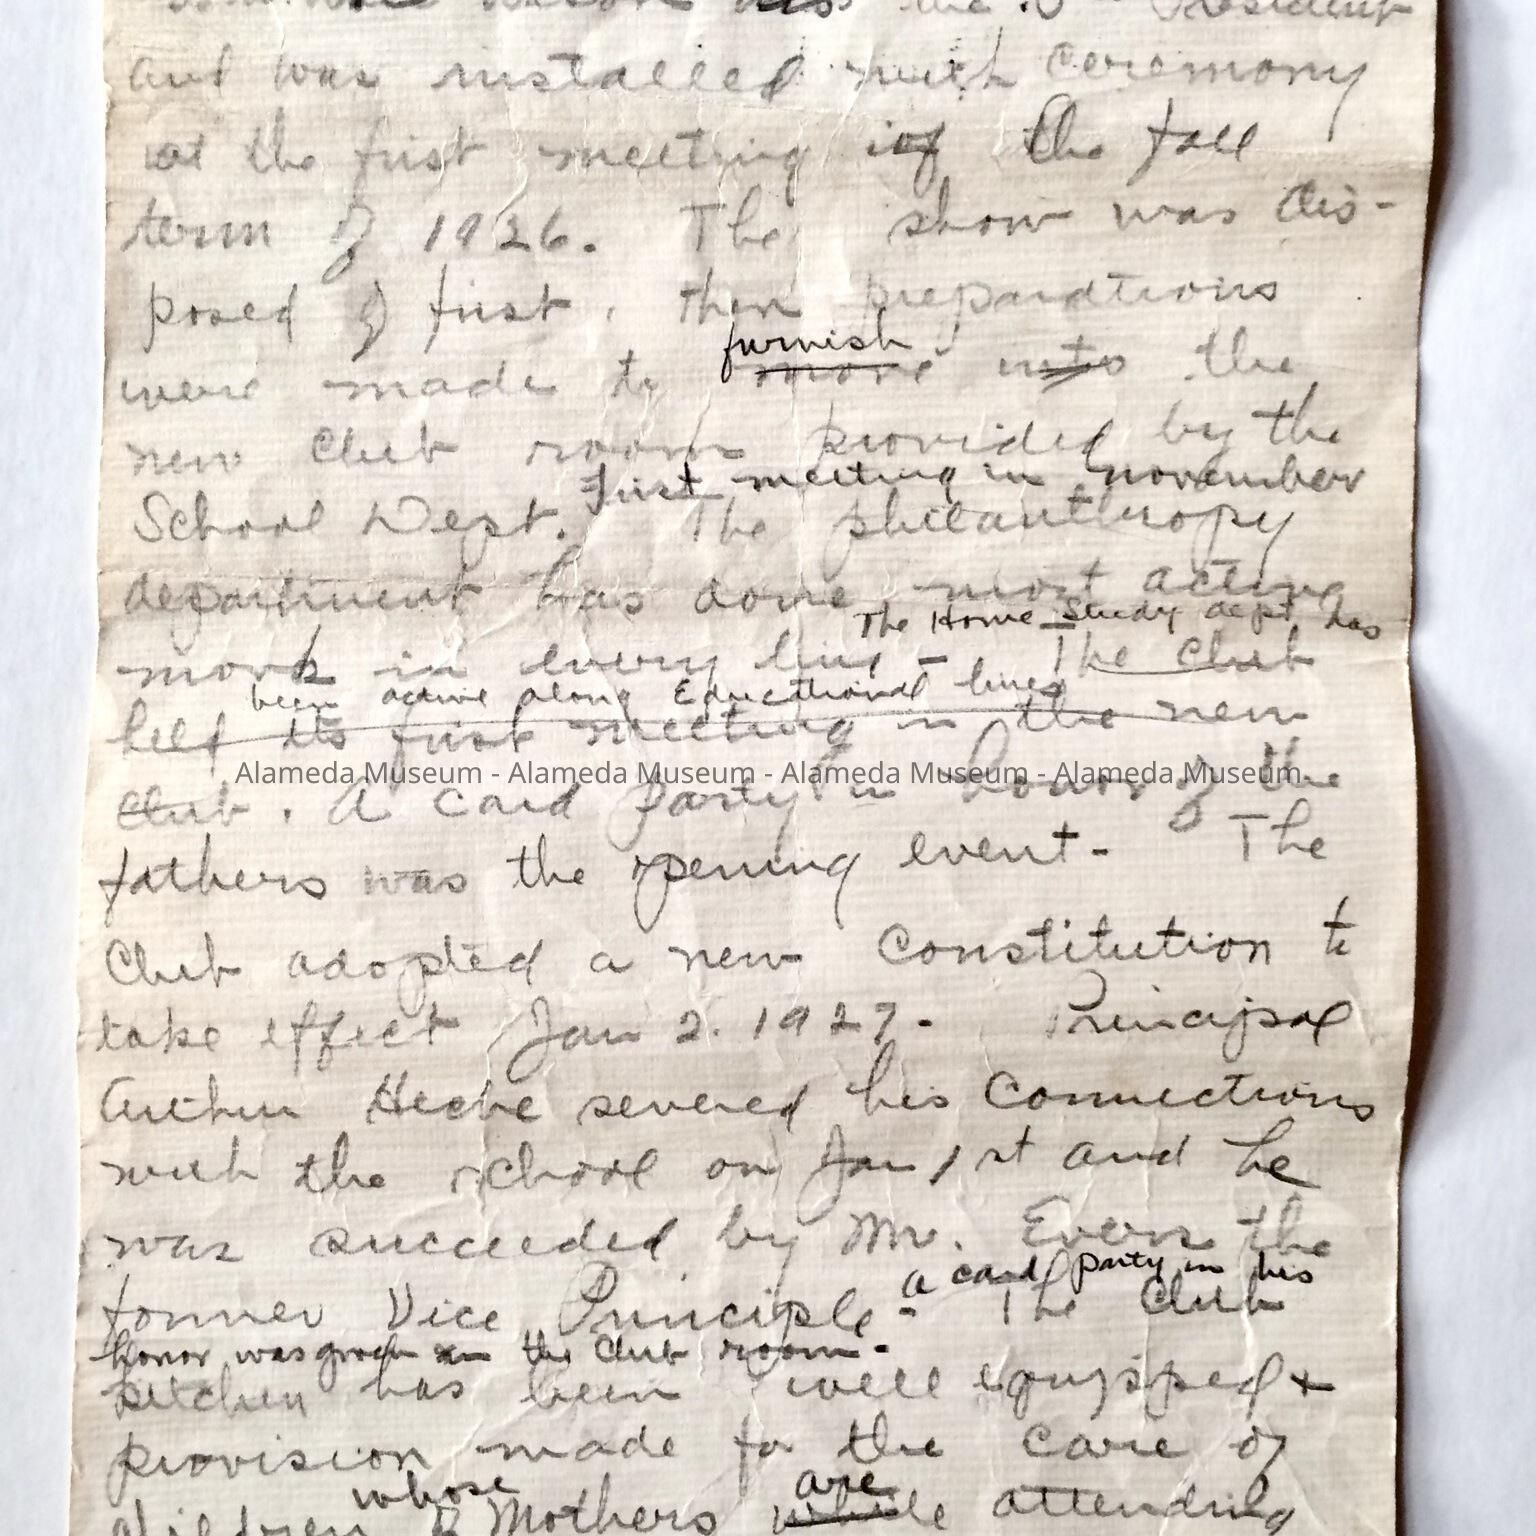 was the President
and was installed with ceremony
at the first meeting of the fall
term of 1926. The show was dis-
posed of first, then preparations
furnish
were made to move into the
new Club room provided by the
First meeting in November
School Dept. The philanthropy
department has done most active
The Home Study dept. has
work in every line - The Club
been active along Educational lines
held its first meeting in the new
Alameda Museum - Alameda Museum - Alameda Museum - Alameda Museum
Club. A card party in honor of the
fathers was the opening event - The
Club adopted a new Constitution to
take effect Jan 2. 1927 - Principal
Arthur severed his Connections
with the school on Jan 1st and he
was succeeded by Mr. the
a card party in his
former Vice Principle - The Club
honor was given in the Club room -
kitchen has been well equipped +
provision made for the care of
whose are
children Mothers while attending